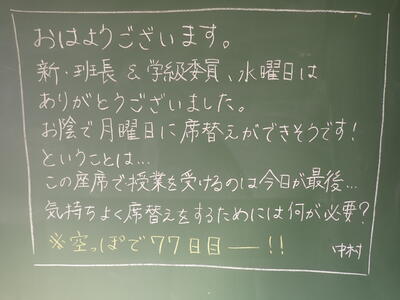 おはようございます。
新・班長 & 学級委員、水曜日は
ありがとうございました。
お陰で月曜日に席替えができそうです!
ということは…
この座席で授業を受けるのは今日が最後…
気持ちよく席替えをするためには何が必要?
※空っぽで77日目―!!
中村